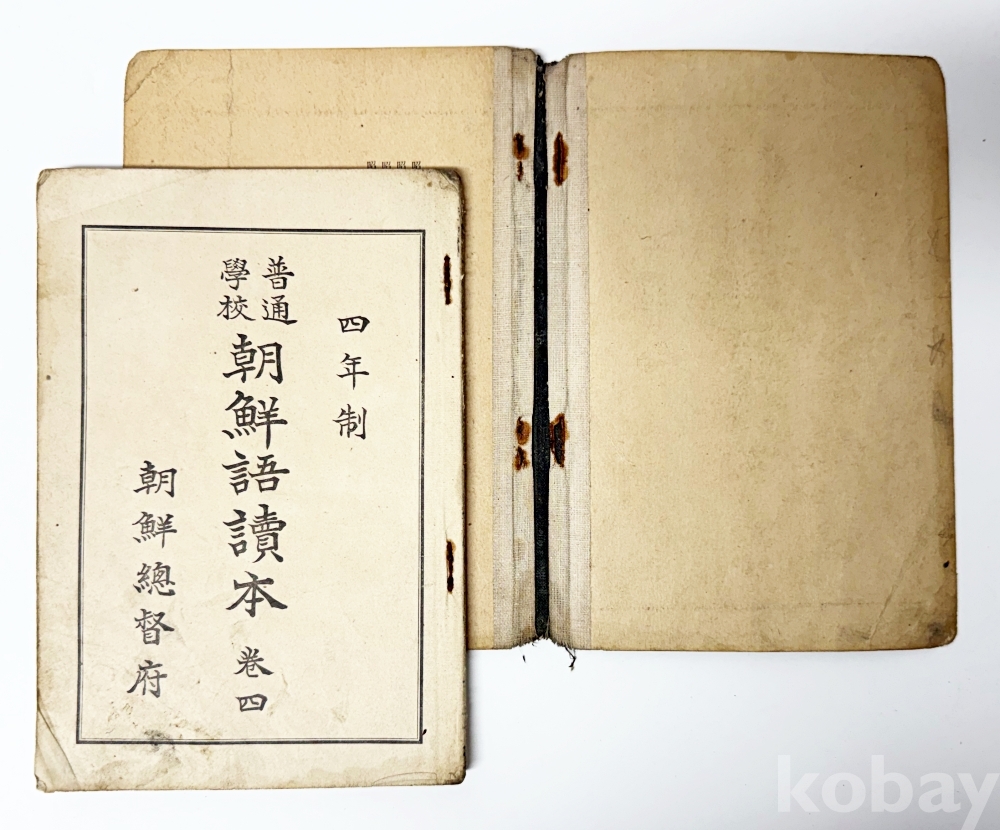 四年制
普通
學校
朝鮮語讀本 卷四
朝鮮總督府
昭昭昭昭
kobay